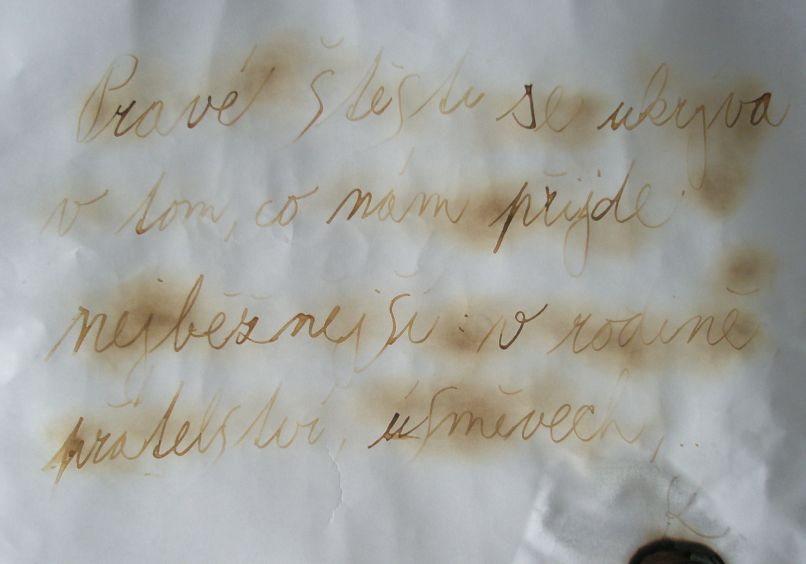 Pravé štěstí se ukrývá
v tom, co nám přijde
nejběžnější: v rodině,
přátelství, úsměvech,...
K